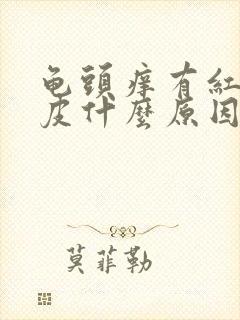 龟頭痒有紅
皮什麼原因
莫菲勒